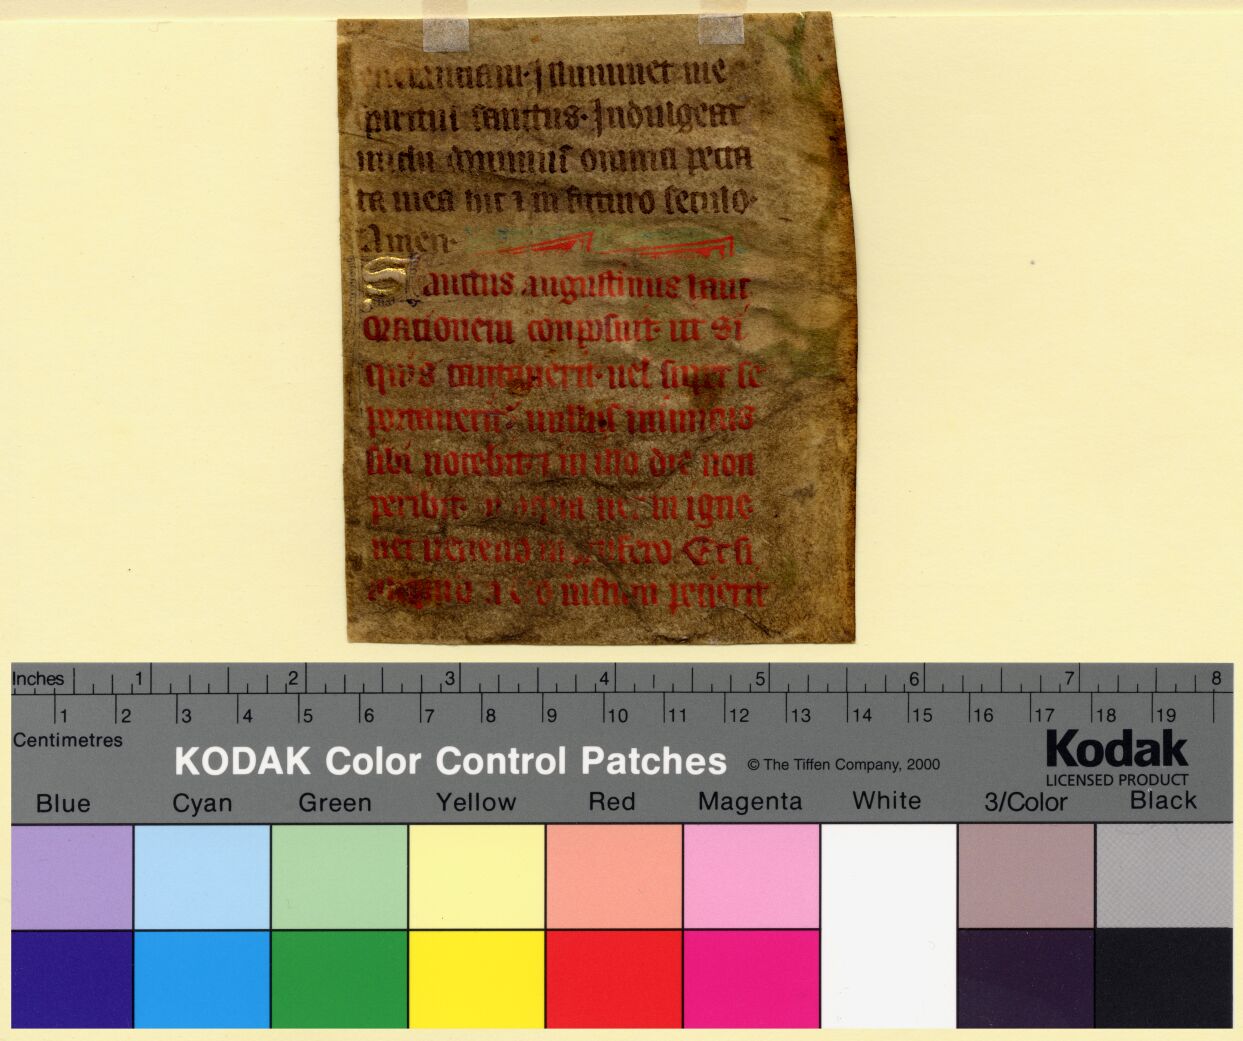 Illuminet me
sanctus. Indulgeat
michi dominus omnia pecca
ta mea hic ⁊ in futuro seculo.
Amen.
Sanctus augustinus hanc
orationem conposuit. ut si
quis cantauerit. uel super se
portauerit. nullus inimicus
sibi nocebit. ⁊ in illo die non
peribit. aqua nec in igne
nec ueneno Et si
iustum petierit
Inches 1 2 3 4 5 6 7 8
1 2 3 4 5 6 7 8 9 10 11 12 13 14 15 16 17 18 19
Centimetres
KODAK Color Control Patches © The Tiffen Company, 2000 Kodak
LICENSED PRODUCT
Blue Cyan Green Yellow Red Magenta White 3/Color Black